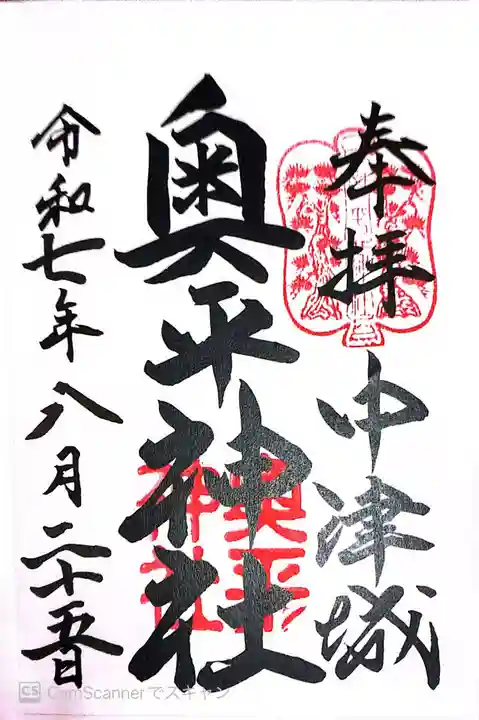 奉拝
中津城
奥平神社
奥平
神社
令和七年八月二十五日
CS CamScannerでスキャン